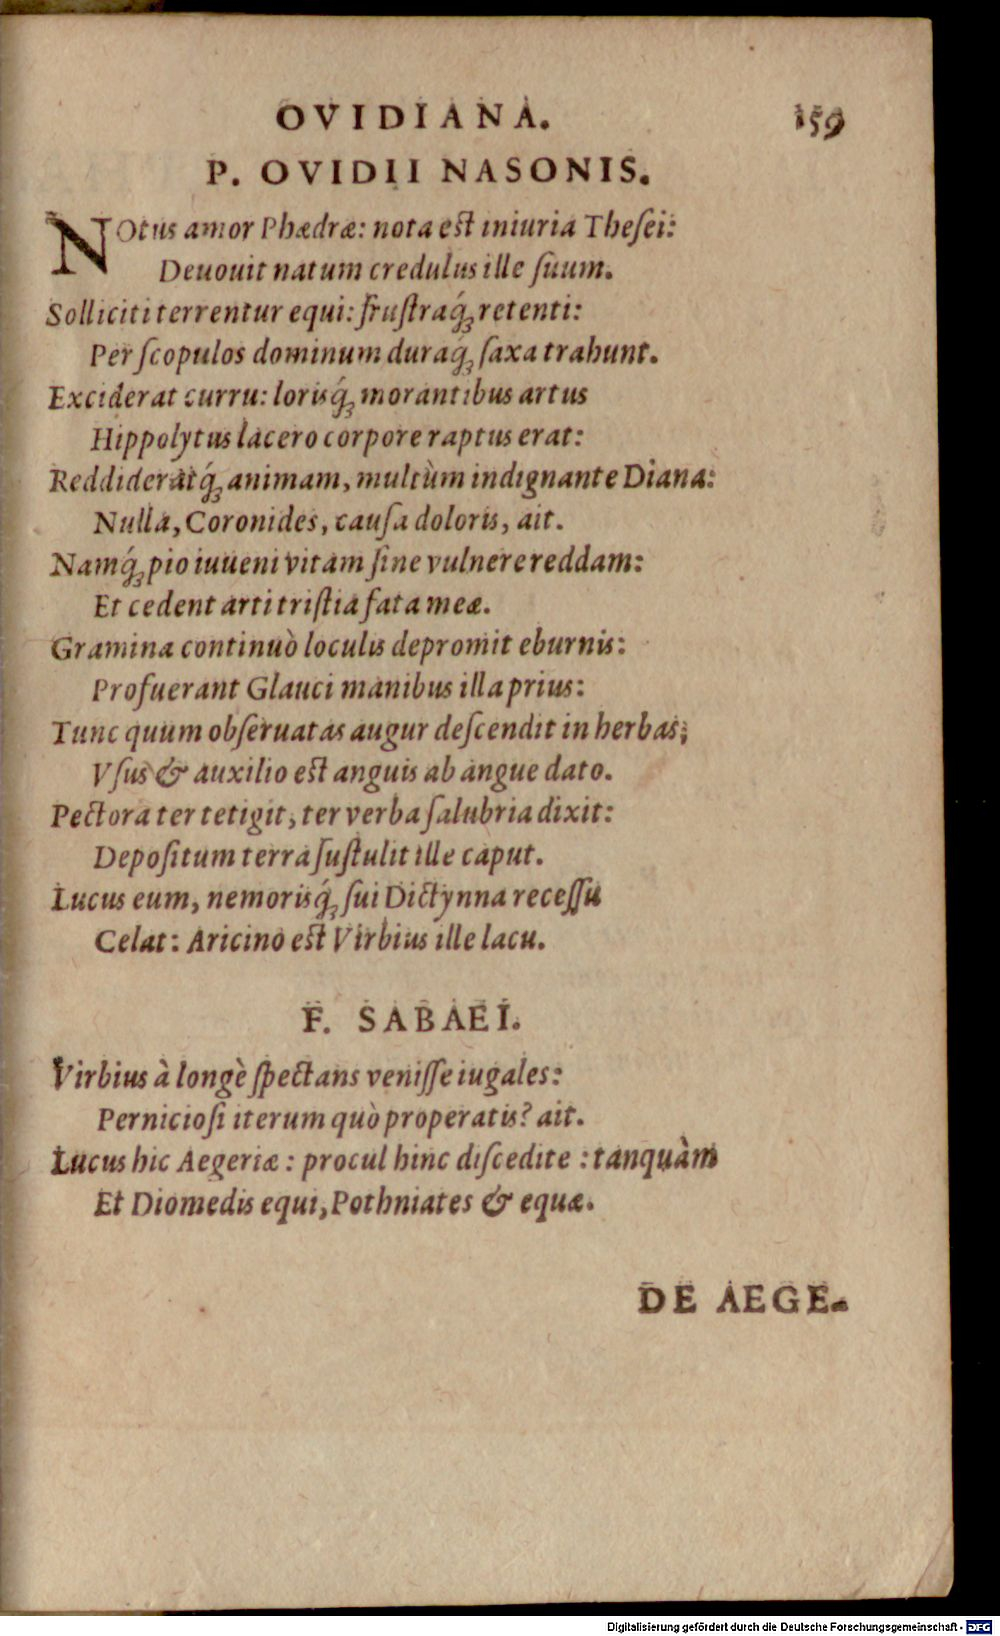 OVIDIANA. 159
P. OVIDII NASONIS.
NOtus amor Phædræ: nota est iniuria Thesei:
Deuouit natum credulus ille suum.
Solliciti terrentur equi: frustraq́; retenti:
Per scopulos dominum duraq́; saxa trahunt.
Exciderat curru: lorisq́; morantibus artus
Hippolytus lacero corpore raptus erat:
Reddideratq́; animam, multùm indignante Diana:
Nulla, Coronides, causa doloris, ait.
Namq́; pio iuueni vitam sine vulnere reddam:
Et cedent arti tristia fata meæ.
Gramina continuò loculis depromit eburnis:
Profuerant Glauci manibus illa prius:
Tunc quum obseruatas augur descendit in herbas;
Vsus & auxilio est anguis ab angue dato.
Pectora ter tetigit, ter verba salubria dixit:
Depositum terra sustulit ille caput.
Lucus eum, nemorisq́; sui Dictynna recessu
Celat: Aricino est Virbius ille lacu.
F. SABAEI.
Virbius à longè spectans venisse iugales:
Perniciosi iterum quò properatis? ait.
Lucus hic Aegeriæ: procul hinc discedite: tanquàm
Et Diomedis equi, Pothniates & equæ.
DE AEGE-
Digitalisierung gefördert durch die Deutsche Forschungsgemeinschaft - DFG